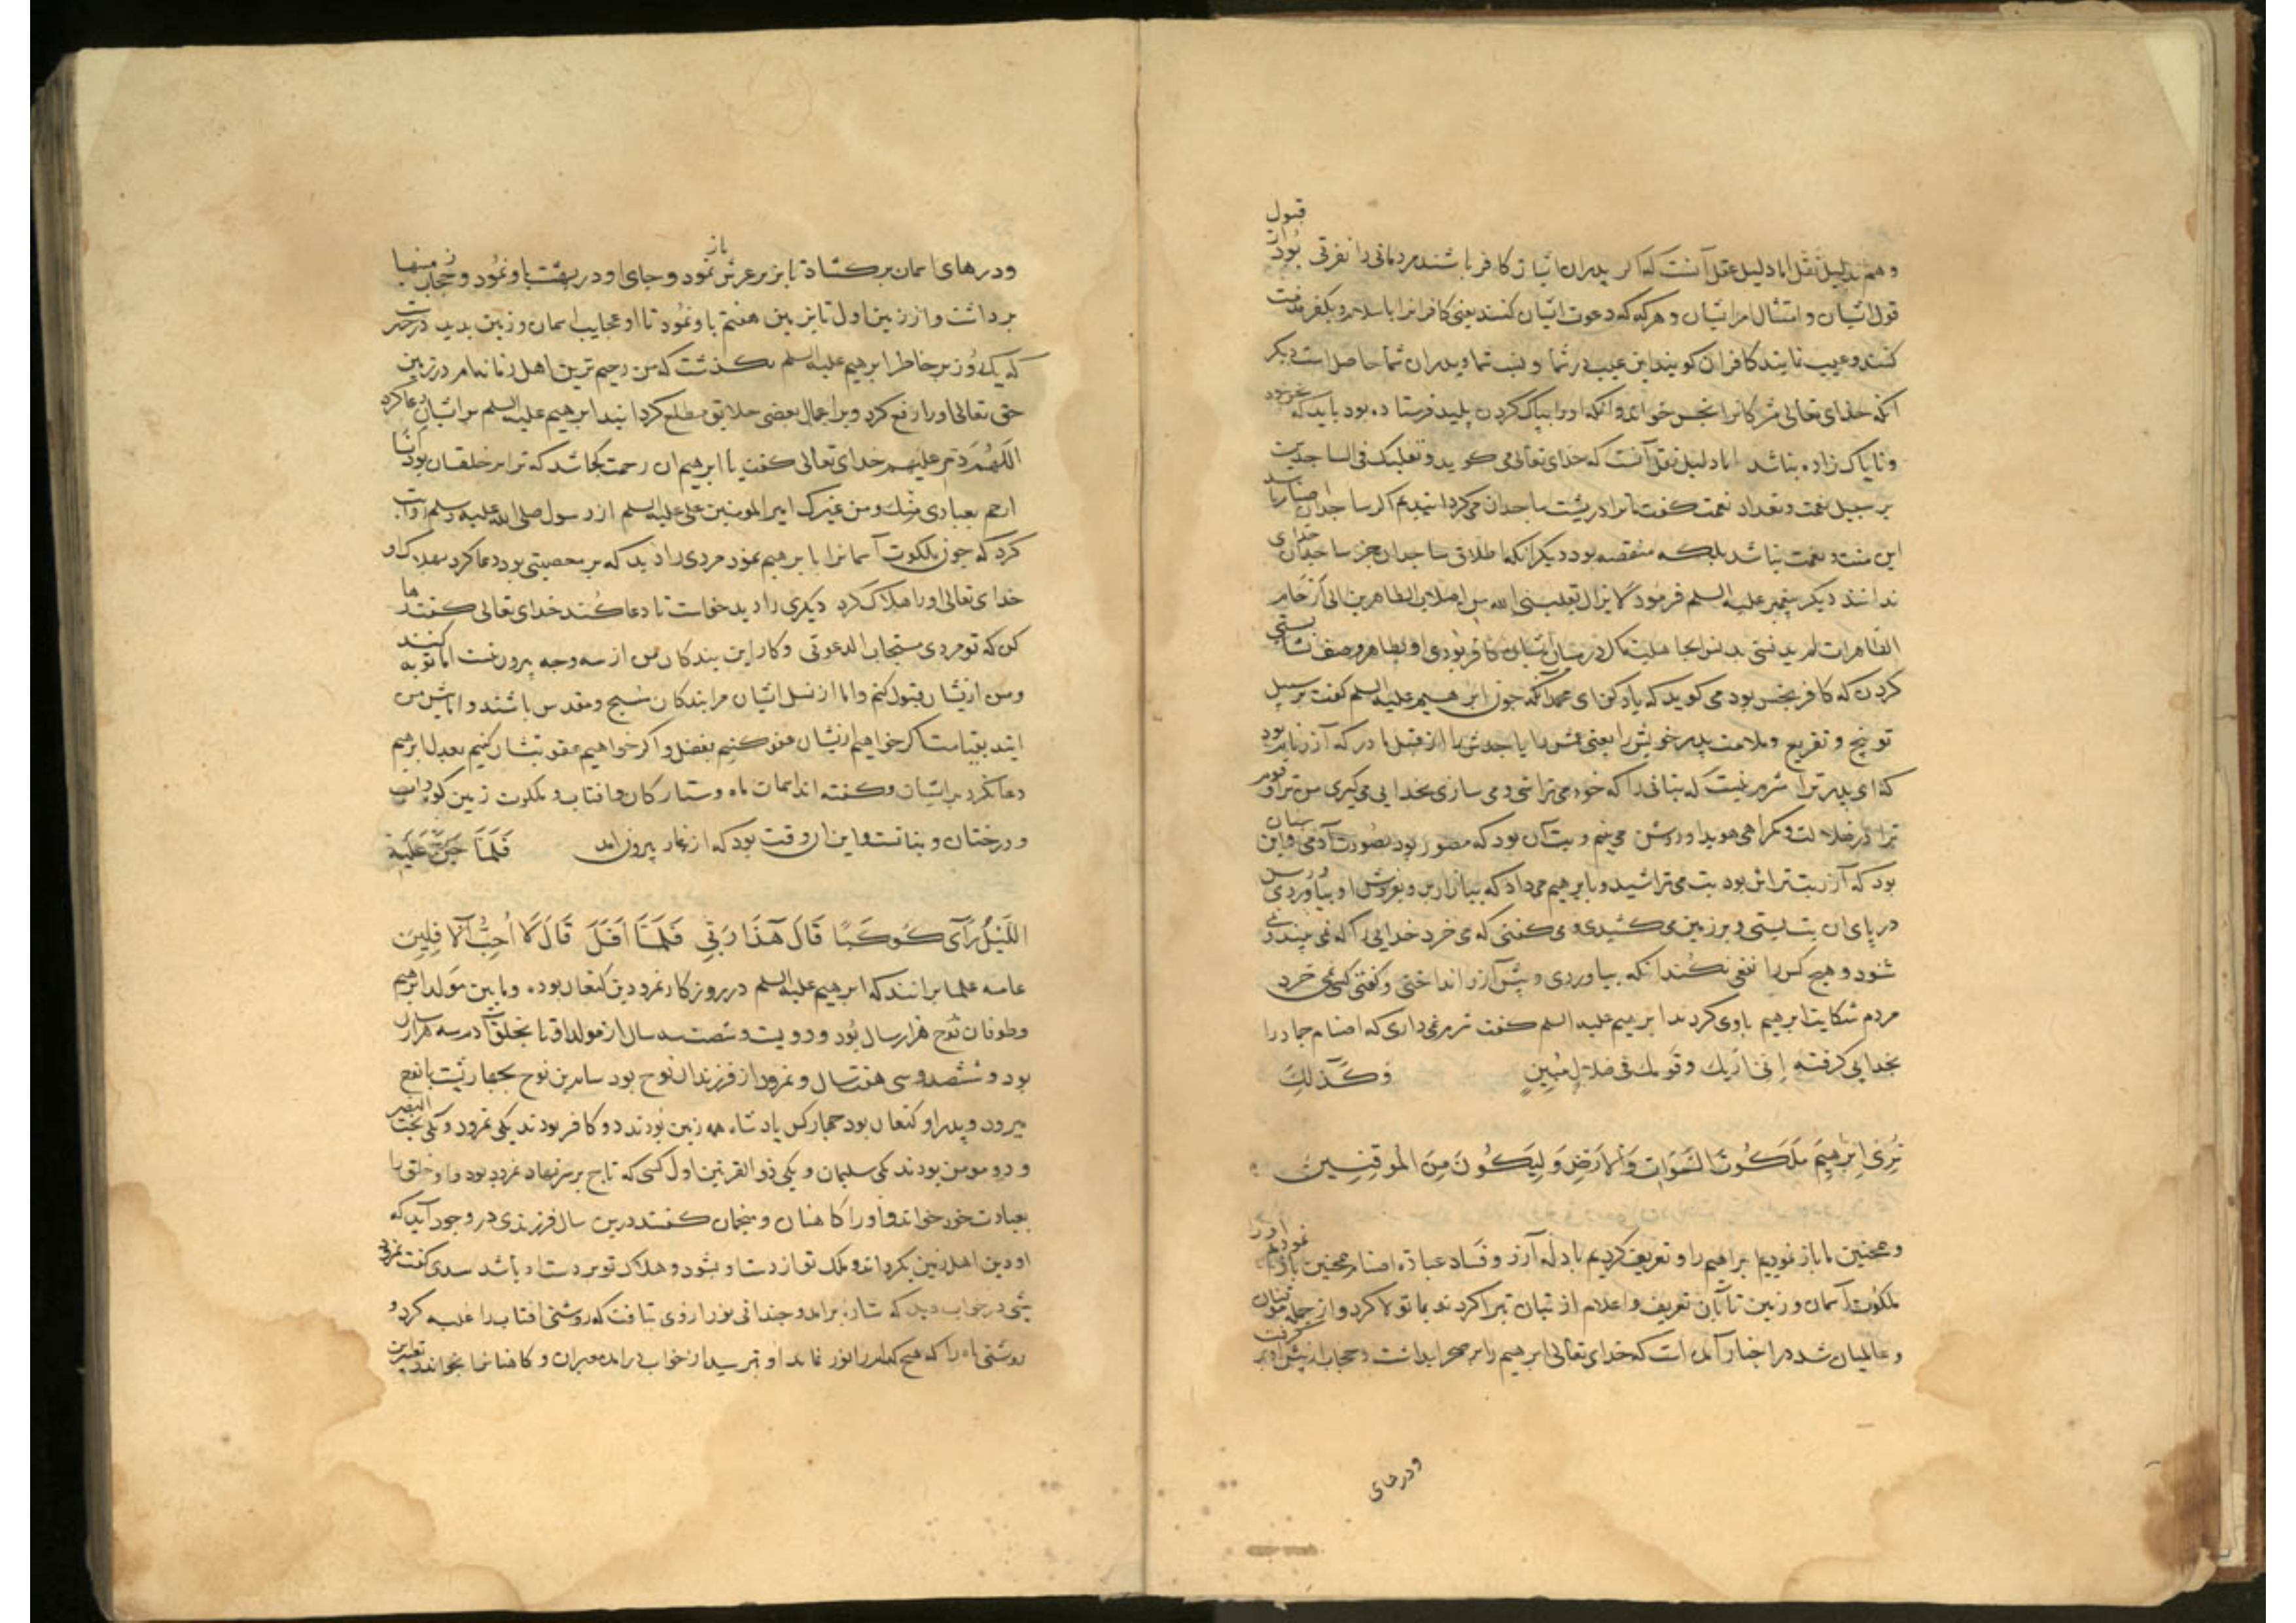 قبول
و هم بدلیل نقل اما دلیل عقل آنست که اگر پدران ایشان کافر باشند مردمانی را نفرتی بود از
قول ایشان و امتثال امر ایشان و هرکه که دعوت ایشان کنند یعنی کافرانرا باسلام و بکفر مذمت
کنند و عیب نمایند کافران کویند این عیب در شما و نسب شما و پدران شما حاصل است دیکر
آنکه خدای تعالی مشرکانرا نجس خواند و آنکه اورا بپاک کردن پلید فرستاده بود باید که
و ناپاک زاده نباشد اما دلیل نقل آنست که خدای تعالی می کوید و تقلبک فی الساجدین
بر سبیل نعمت و تعداد نعمت کفت ترا در پشت ساجدان می کردانیدیم اکر ساجدان اصنام باشند
این منت و نعمت نباشد بلکه منقصه بود دیکر آنکه اطلاق ساجدان جز ساجدان خدای
ندانند دیکر پیغمبر علیه السلم فرمود لا یزال ینقلنی الله من اصلاب الطاهرین الی ارحام
الطاهرات لم یدنسنی بدنس الجاهلیة
کردن که کافر نجس بود می کوید که یاد کن ای محمد آنکه چون ابرهیم علیه السلم کفت بر سبیل
توبیخ و تقریع و ملامت پدر خویش را یعنی عمش را یا جدش را از قبل مادر که آزر نام بود
که ای پدر ترا شرم نیست که بتانی را که خود می تراشی و می سازی بخدایی می کیری من ترا و قوم
ترا در ضلالت و کمراهی هویدا و روشن می بینم و بت آن بود که مصور بود بصورت آدمی و این
بود که آزر بت تراش بود بت می تراشید و بابرهیم می داد که ببازار بر و بفروش او بیاوردی
در پای ان بت بستی و بر زمین می کشیدی و می کفتی که می خرد خدایی را که نمی بیند و نمی
شنود و هیچ کس را نفعی نکند انکه بیاوردی و پیش آزر انداختی و کفتی کس نمی خرد
مردم شکایت ابرهیم باوی کردند ابرهیم علیه السلم کفت شرم نمی داری که اصنام جماد را
بخدایی کرفته اِنّی اَریک وَقَومَک فی ضَلالٍ مُبینٍ وَکَذلِکَ
نُری اِبرهیمَ مَلَکُوتَ السَّمَواتِ وَالاَرضِ وَلِیَکُونَ مِنَ المُوقِنینَ
و همچنین ما باز نمودیم ابراهیم را و تعریف کردیم بادله آزر و فساد عباده اصنام همچنین باز نمودیم اورا
ملکوت آسمان و زمین تا بآن تعریف و اعلام از بتان تبرا کرد و بما تولا کرد و از جمله موقنان
و عالمیان شد در اخبار آمده است که خدای تعالی ابرهیم را بر صخره بداشت و حجاب از پیش او بر کرفت
ودرهای
ودرهای اسمان بر کشاد تا بزیر عرش باز نمود و جای او در بهشت باو نمود و حجاب زمینها
برداشت و از زمین اول تا بزمین هفتم باو نمود تا او عجایب اسمان و زمین بدید در خبرست
که یک روز بر خاطر ابرهیم علیه السلم بکذشت که من رحیم ترین اهل زمانه ام در زمین
حق تعالی اورا رفع کرد و بر اعمال بعضی خلایق مطلع کردانید ابرهیم علیه السلم بر ایشان دعا کرد
اللهم دمر علیهم خدای تعالی کفت یا ابرهیم ان رحمت کجا شد که ترا بر خلقان بود انا
ارحم بعبادی منک و من غیرک امیر المومنین علی علیه السلم از رسول صلی الله علیه و سلم روایت
کرد که چون ملکوت آسمانرا بابرهیم نمود مردی را دید که بر معصیتی بود دعا کرد بهلاک او
خدای تعالی اورا هلاک کرد دیکری را دید خواست تا دعا کند خدای تعالی کفت رها
کن که تو مردی مستجاب الدعوتی و کار این بندکان من از سه وجه بیرون نیست اما توبه کنند
و من ازیشان قبول کنم و اما از نسل ایشان مرا بندکان مسبح و مقدس باشند و اما پیش من
ایند بقیامت اکر خواهیم ازیشان عفو کنیم بفضل و اکر خواهیم عقوبتشان کنیم بعدل ابرهیم
دعا نکرد بر ایشان و کفته اند اسمان ماه و ستارکان و افتاب و ملکوت زمین کوه و
و درختان و نباتست و این ان وقت بود که از غار بیرون امد فَلَمّا جَنَّ عَلَیهِ
اللَّیلُ رَآی کَوکَبًا قالَ هذا رَبّی فَلَمّا اَفَلَ قالَ لا اُحِبُّ الآفِلینَ
عامه علما برانند که ابرهیم علیه السلم در روزکار نمرود بن کنعان بوده و مابین مولد ابرهیم
و طوفان نوح هزار سال بود و دویست و شصت سه سال از مولد او تا بخلق آدم سه هزار سال
بود و ششصد و سی هفت سال و نمرود از فرزندان نوح بود سام بن نوح بچهار پشت با نوح
میرود و پدر او کنعان بود چهار کس پادشاه همه زمین بودند دو کافر بودند یکی نمرود و یکی بخت النصر
و دو مومن بودند یکی سلیمان و یکی ذو القرنین اول کسی که تاج بر سر نهاد نمرود بود و او خلق را
بعبادت خود خواند و اورا کاهنان و منجمان کفتند درین سال فرزندی در وجود آید که
او دین اهل زمین بکرداند و ملک تو از دست او بشود و هلاک تو بر دست او باشد سدی کفت نمرود
شبی در خواب دید که ستاره برامد و چندانی نور از وی بتافت که روشنی افتاب را غلبه کرد و
روشنی ماه را که هیچ کدام را نور نماند او بترسید از خواب درامد معبران و کاهنانرا بخواند تعبیر این